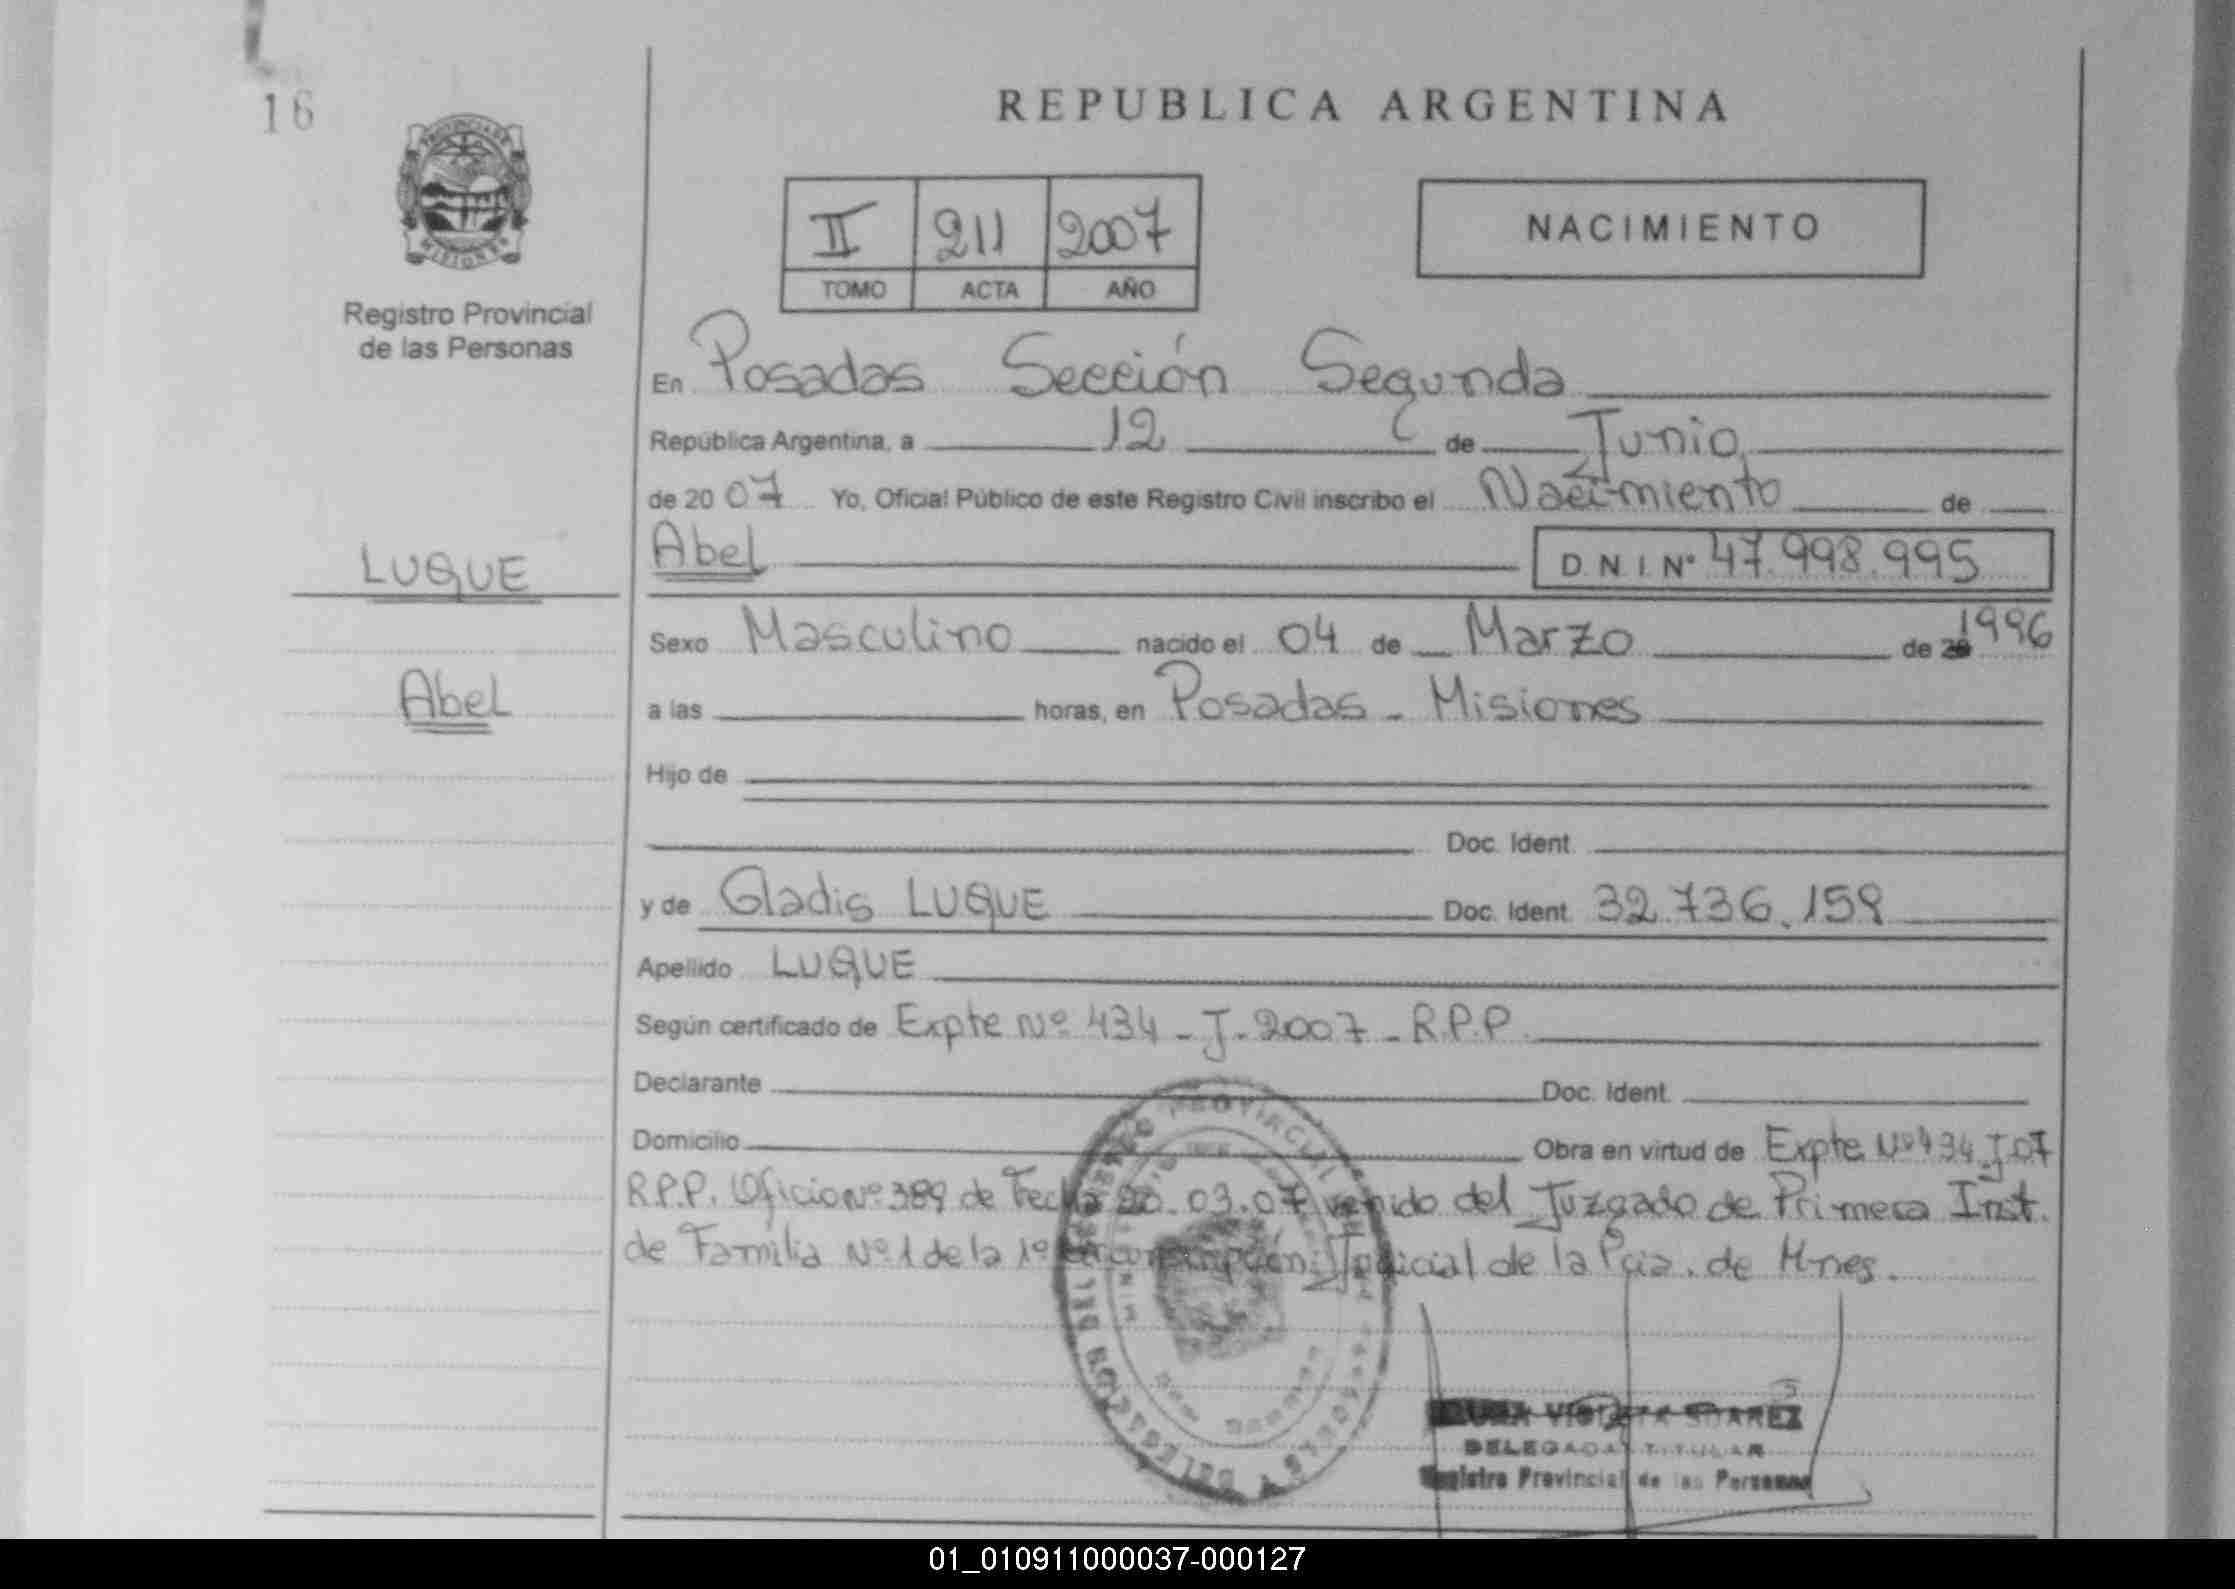 16
PROVINCIA DE
MISIONES
Registro Provincial
de las Personas
REPUBLICA ARGENTINA
II 211 2007
TOMO ACTA AÑO
NACIMIENTO
En Posadas Sección Segunda
República Argentina, a 12 de Junio
de 2007 Yo, Oficial Público de este Registro Civil inscribo el Nacimiento de
LUQUE
Abel D.N.I. Nº 47.998.995
Sexo Masculino nacido el 04 de Marzo de 1996
Abel
a las horas, en Posadas - Misiones
Hijo de
Doc. Ident.
y de Gladis LUQUE Doc. Ident. 32.736.159
Apellido LUQUE
Según certificado de Expte Nº 434 - J - 2007 - R.P.P.
Declarante Doc. Ident.
Domicilio Obra en virtud de Expte Nº 434 J 07
R.P.P. Oficio Nº 389 de Fecha 20.03.07 venido del Juzgado de Primera Inst.
de Familia Nº 1 de la 1º Circunscripción Judicial de la Pcia. de Mnes.
SUAREZ
DELEGADA TITULAR
Registro Provincial de las Personas
01_010911000037-000127